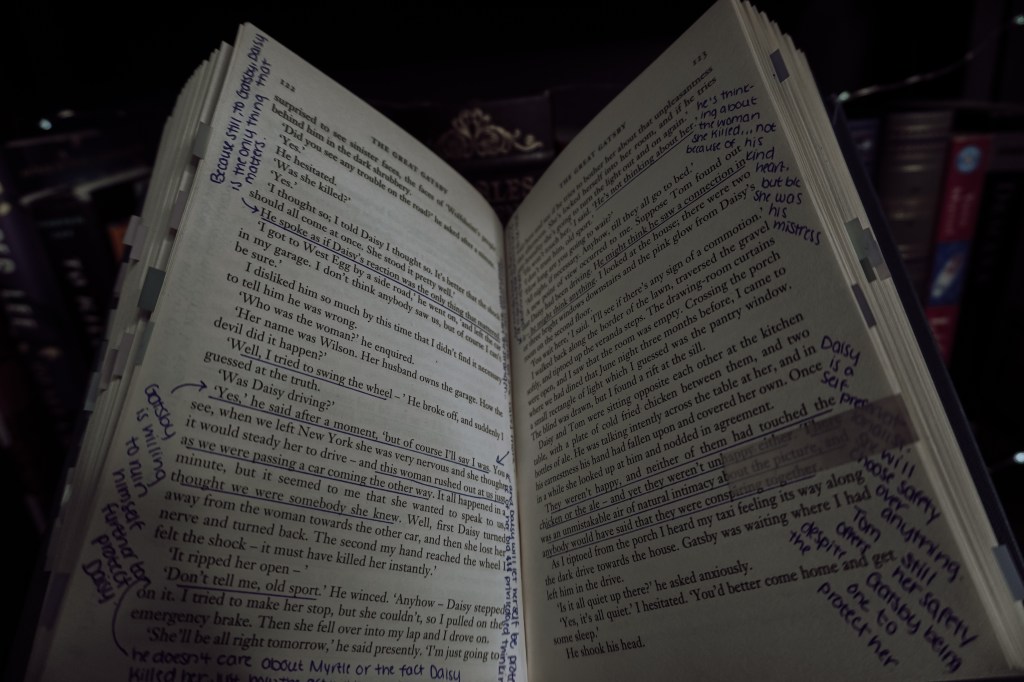 222
THE GREAT GATSBY
surprised to see sinister faces, the faces of
behind him in the dark shrubbery.
'Did you see any trouble on the road?' he asked after a minute.
'Yes.'
He hesitated.
'Was she killed?'
'Yes.'
'I thought so; I told Daisy I thought so. It's better that the shock
should all come at once. She stood it pretty well.'
He spoke as if Daisy's reaction was the only thing that mattered.
'I got to West Egg by a side road,' he went on, 'and left the car
in my garage. I don't think anybody saw us, but of course I can't
be sure.'
I disliked him so much by this time that I didn't find it necessary
to tell him he was wrong.
'Who was the woman?' he enquired.
'Her name was Wilson. Her husband owns the garage. How the
devil did it happen?'
'Well, I tried to swing the wheel – ' He broke off, and suddenly I
guessed at the truth.
'Was Daisy driving?'
'Yes,' he said after a moment, 'but of course I'll say I was. You
see, when we left New York she was very nervous and she thought
it would steady her to drive – and this woman rushed out at us just
as we were passing a car coming the other way. It all happened in a
minute, but it seemed to me that she wanted to speak to us,
thought we were somebody she knew. Well, first Daisy turned
away from the woman towards the other car, and then she lost her
nerve and turned back. The second my hand reached the wheel I
felt the shock – it must have killed her instantly.'
'It ripped her open – '
'Don't tell me, old sport.' He winced. 'Anyhow – Daisy stepped
on it. I tried to make her stop, but she couldn't, so I pulled on the
emergency brake. Then she fell over into my lap and I drove on.
'She'll be all right tomorrow,' he said presently. 'I'm just going to
Because still, to Gatsby, Daisy
is the only thing that
matters.
Gatsby
is willing
to ruin
himself
further to
protect
Daisy
he doesn't care about Myrtle or the fact Daisy
killed her
223
THE GREAT GATSBY
bother her about that unpleasantness
into her room, and if he tries
the light out and on again.'
'He's not thinking about her.'
Anyhow, till they all go to bed.'
Suppose Tom found out
He might think he saw a connection in
think anything. I looked at the house; there were two
bright windows downstairs and the pink glow from Daisy's
second floor.
'You wait here,' I said. 'I'll see if there's any sign of a commotion.'
I walked back along the border of the lawn, traversed the gravel
softly, and tiptoed up the veranda steps. The drawing-room curtains
were open, and I saw that the room was empty. Crossing the porch
where we had dined that June night three months before, I came to
a small rectangle of light which I guessed was the pantry window.
The blind was drawn, but I found a rift at the sill.
Daisy and Tom were sitting opposite each other at the kitchen
table, with a plate of cold fried chicken between them, and two
bottles of ale. He was talking intently across the table at her, and in
his earnestness his hand had fallen upon and covered her own. Once
in a while she looked up at him and nodded in agreement.
They weren't happy, and neither of them had touched the
chicken or the ale – and yet they weren't unhappy either. There
was an unmistakable air of natural intimacy about the picture, and
anybody would have said that they were conspiring together.
As I tiptoed from the porch I heard my taxi feeling its way along
the dark drive towards the house. Gatsby was waiting where I had
left him in the drive.
'Is it all quiet up there?' he asked anxiously.
'Yes, it's all quiet.' I hesitated. 'You'd better come home and get
some sleep.'
He shook his head.
he's think-
ing about
the woman
she killed... not
because of his
kind
heart,
but b/c
she was
his
mistress
Daisy
is a
self
will
choose safety
over
anything.
Tom
offers
her safety
despite
Gatsby being
the one to
protect her